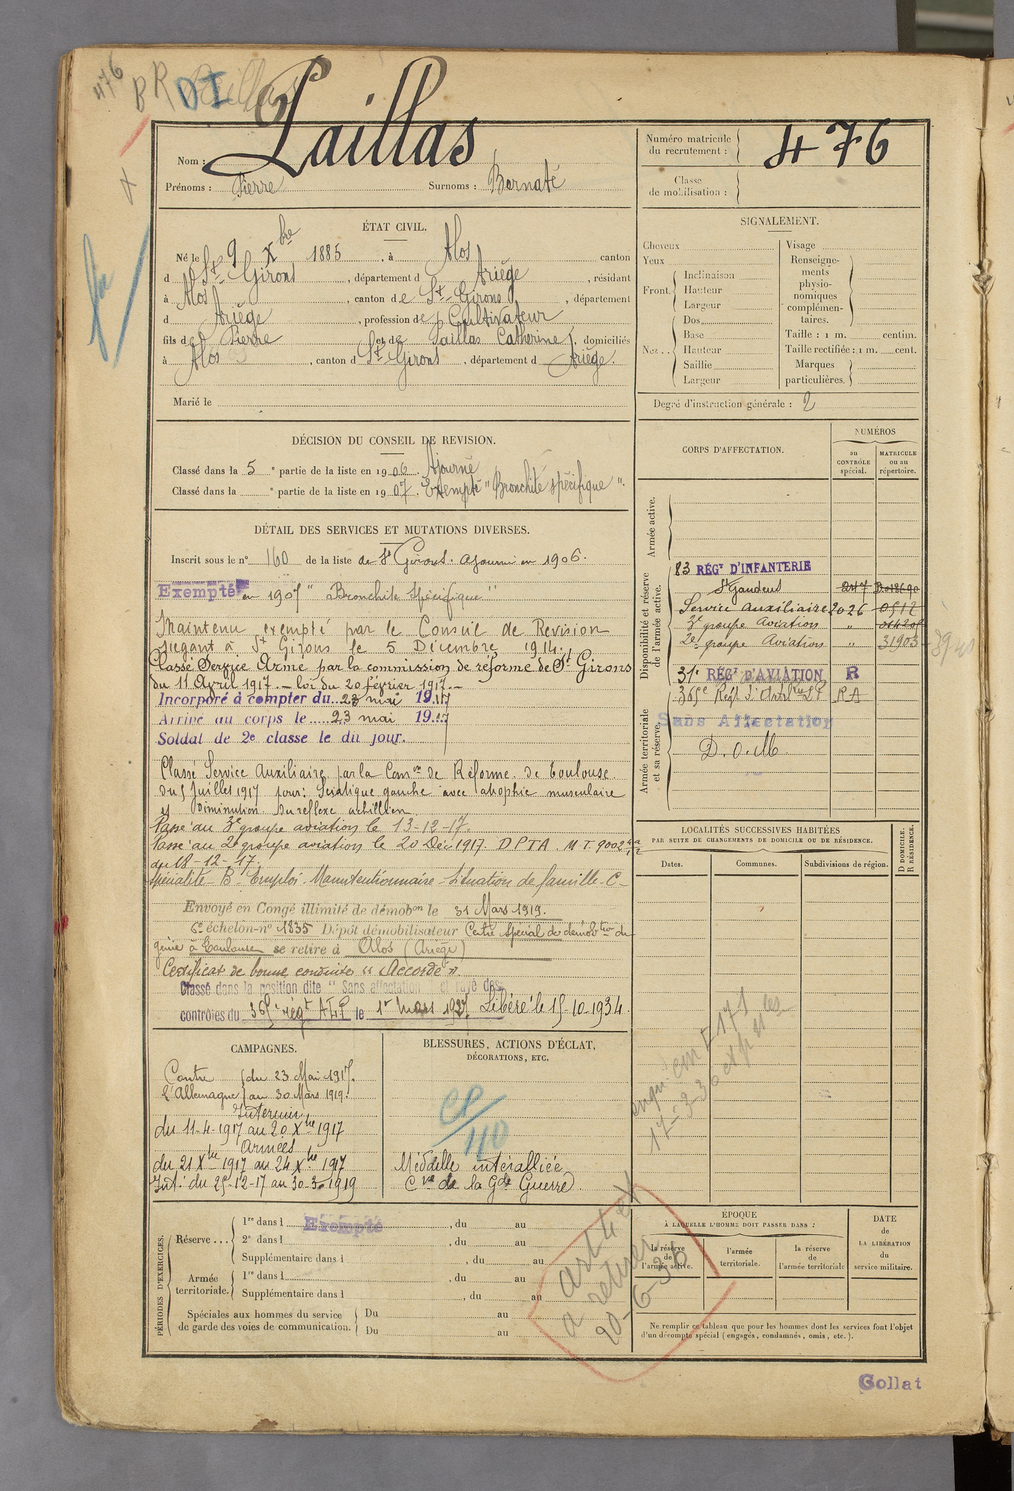 476
BR DI
Nom : Laillas
Prénoms : Pierre Surnoms : Bernaté
Numéro matricule du recrutement : 476
Classe de mobilisation :
ÉTAT CIVIL.
Né le 9 Xbre 1885, à Alos canton
d St Girons, département d Ariège, résidant
à Alos, canton de St Girons, département
d Ariège, profession de Cultivateur
fils de Pierre et de Laillas Catherine, domiciliés
à Alos, canton d St Girons, département d Ariège.
Marié le
SIGNALEMENT.
Cheveux
Yeux
Front. Inclinaison
Hauteur
Largeur
Nez.. Dos
Base
Hauteur
Saillie
Largeur
Visage
Renseigne-
ments
physio-
nomiques
complémen-
taires.
Taille : 1 m. centim.
Taille rectifiée : 1 m. cent.
Marques
particulières.
Degré d'instruction générale : 2
DÉCISION DU CONSEIL DE REVISION.
Classé dans la 5e partie de la liste en 1906. Ajourné
Classé dans la e partie de la liste en 1907. Exempté "Bronchite spécifique".
DÉTAIL DES SERVICES ET MUTATIONS DIVERSES.
Inscrit sous le n° 160 de la liste de St Girons. Ajourné en 1906.
Exempté en 1907 "Bronchite Spécifique"
Maintenu exempté par le Conseil de Revision
siégant à St Girons le 5 Décembre 1914.
Classé Service Armé par la commission de réforme de St Girons
du 11 Avril 1917. — loi du 20 février 1917. —
Incorporé à compter du 23 mai 1917
Arrivé au corps le 23 mai 1917
Soldat de 2e classe le du jour.
Classé Service Auxiliaire par la Comon de Réforme de Toulouse
du 5 Juillet 1917 pour: Sciatique gauche avec atrophie musculaire
et diminution du reflexe achilléen
Passé au 3e groupe aviation le 13-12-17.
Passé au 2e groupe aviation le 20 Déc. 1917. DPTA. MT. 9002
du 18-12-17.
Spécialité - B - Emploi - Manutentionnaire - Situation de famille - C -
Envoyé en Congé illimité de démobon le 31 Mars 1919.
6e échelon - n° 1835 Dépôt démobilisateur Centre spécial de démobtion du
génie à Toulouse se retire à Alos (Ariège)
Certificat de bonne conduite "Accordé".
Classé dans la position dite "Sans affectation" et rayé des
contrôles du 365e régt ALP le 1er Mars 1927, Libéré le 15-10-1934.
CORPS D'AFFECTATION.
NUMÉROS
au CONTRÔLE spécial.
MATRICULE ou au répertoire.
Armée active.
Disponibilité et réserve de l'armée active.
83 RÉGt D'INFANTERIE
St Gaudens
Service Auxiliaire 2026
3e groupe Aviation "
2e groupe Aviation " 31903
31e RÉGt D'AVIATION R
365e Régt d'Art RA
Armée territoriale et sa réserve.
Sans Affectation
D.O.M.
LOCALITÉS SUCCESSIVES HABITÉES
PAR SUITE DE CHANGEMENTS DE DOMICILE OU DE RÉSIDENCE.
Dates. Communes. Subdivisions de région.
D DOMICILE. R RÉSIDENCE.
CAMPAGNES.
Contre du 23 Mai 1917.
l'Allemagne au 30 Mars 1919.
Intérieur
du 11-4-1917 au 20 Xbre 1917
Armées
du 21 Xbre 1917 au 24 Xbre 1917
Int: du 25-12-17 au 30-3-1919
BLESSURES, ACTIONS D'ÉCLAT,
DÉCORATIONS, ETC.
CP/40
Médaille interalliée
Cve de la Gde Guerre
PÉRIODES D'EXERCICES.
Réserve... 1re dans l Exempté, du au
2e dans l, du au
Supplémentaire dans l, du au
Armée territoriale. 1re dans l, du au
Supplémentaire dans l, du au
Spéciales aux hommes du service Du au
de garde des voies de communication. Du au
ÉPOQUE
À LAQUELLE L'HOMME DOIT PASSER DANS :
la réserve de l'armée active.
l'armée territoriale.
la réserve de l'armée territoriale
DATE DE LA LIBÉRATION du service militaire.
20-6-36
Ne remplir ce tableau que pour les hommes dont les services font l'objet
d'un décompte spécial (engagés, condamnés, omis, etc.).
Gollat